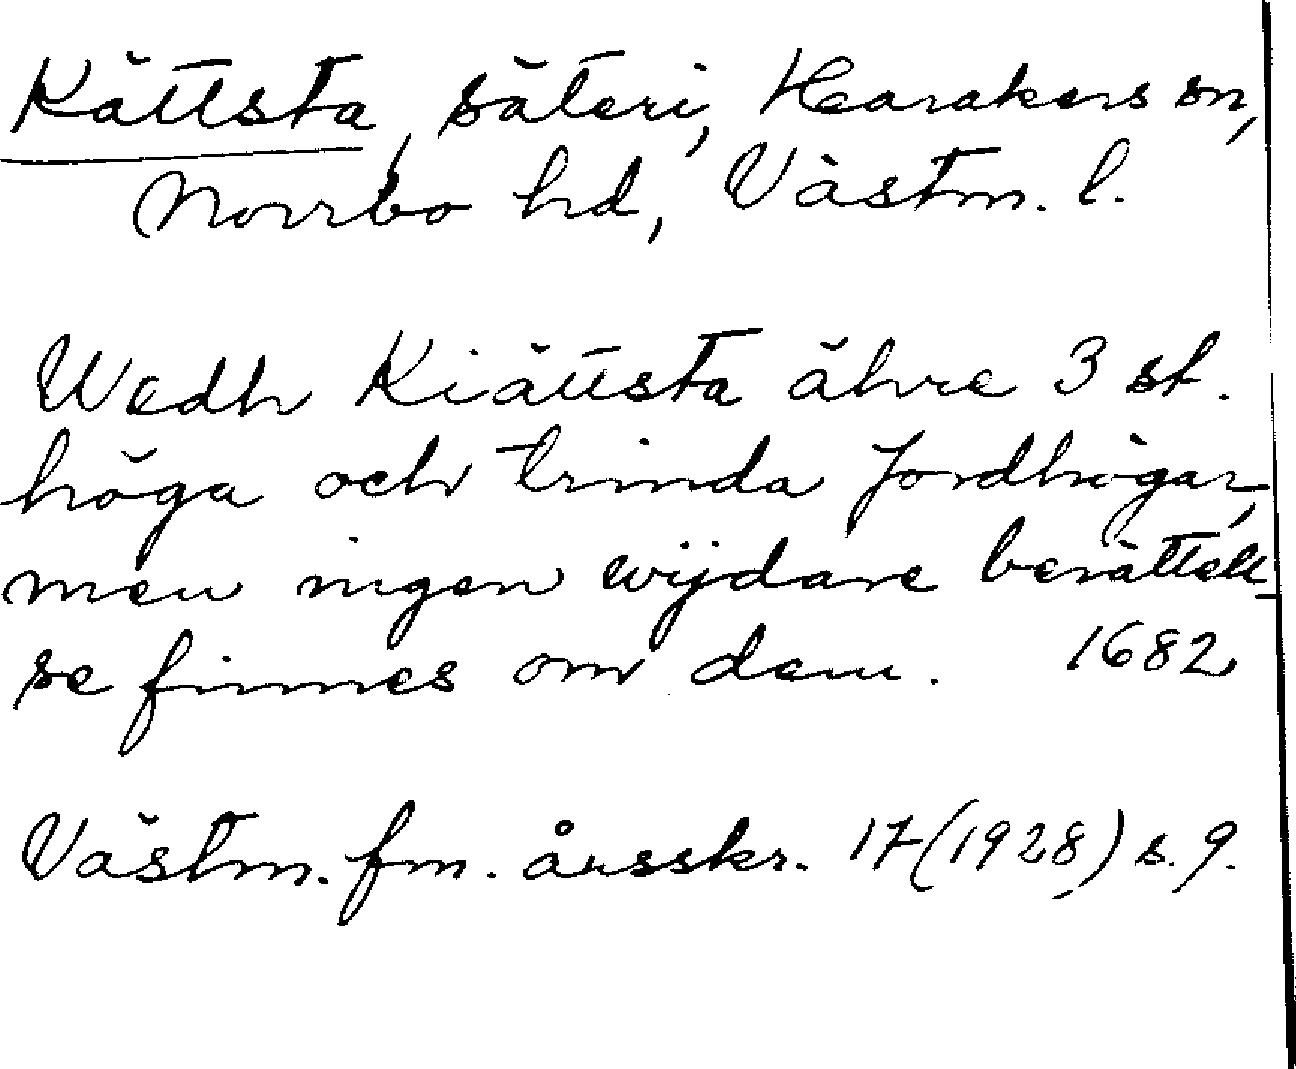 Kättsta, säteri, Haraker sn,
Norrbo hd, Västm. l.
Wedh Kiättsta ähre 3 st.
höga och trinda Jordhögar,
men ingen wijdare berättel-
se finnes om dem. 1682
Västm. fm. årsskr. 17 (1928) s. 9.